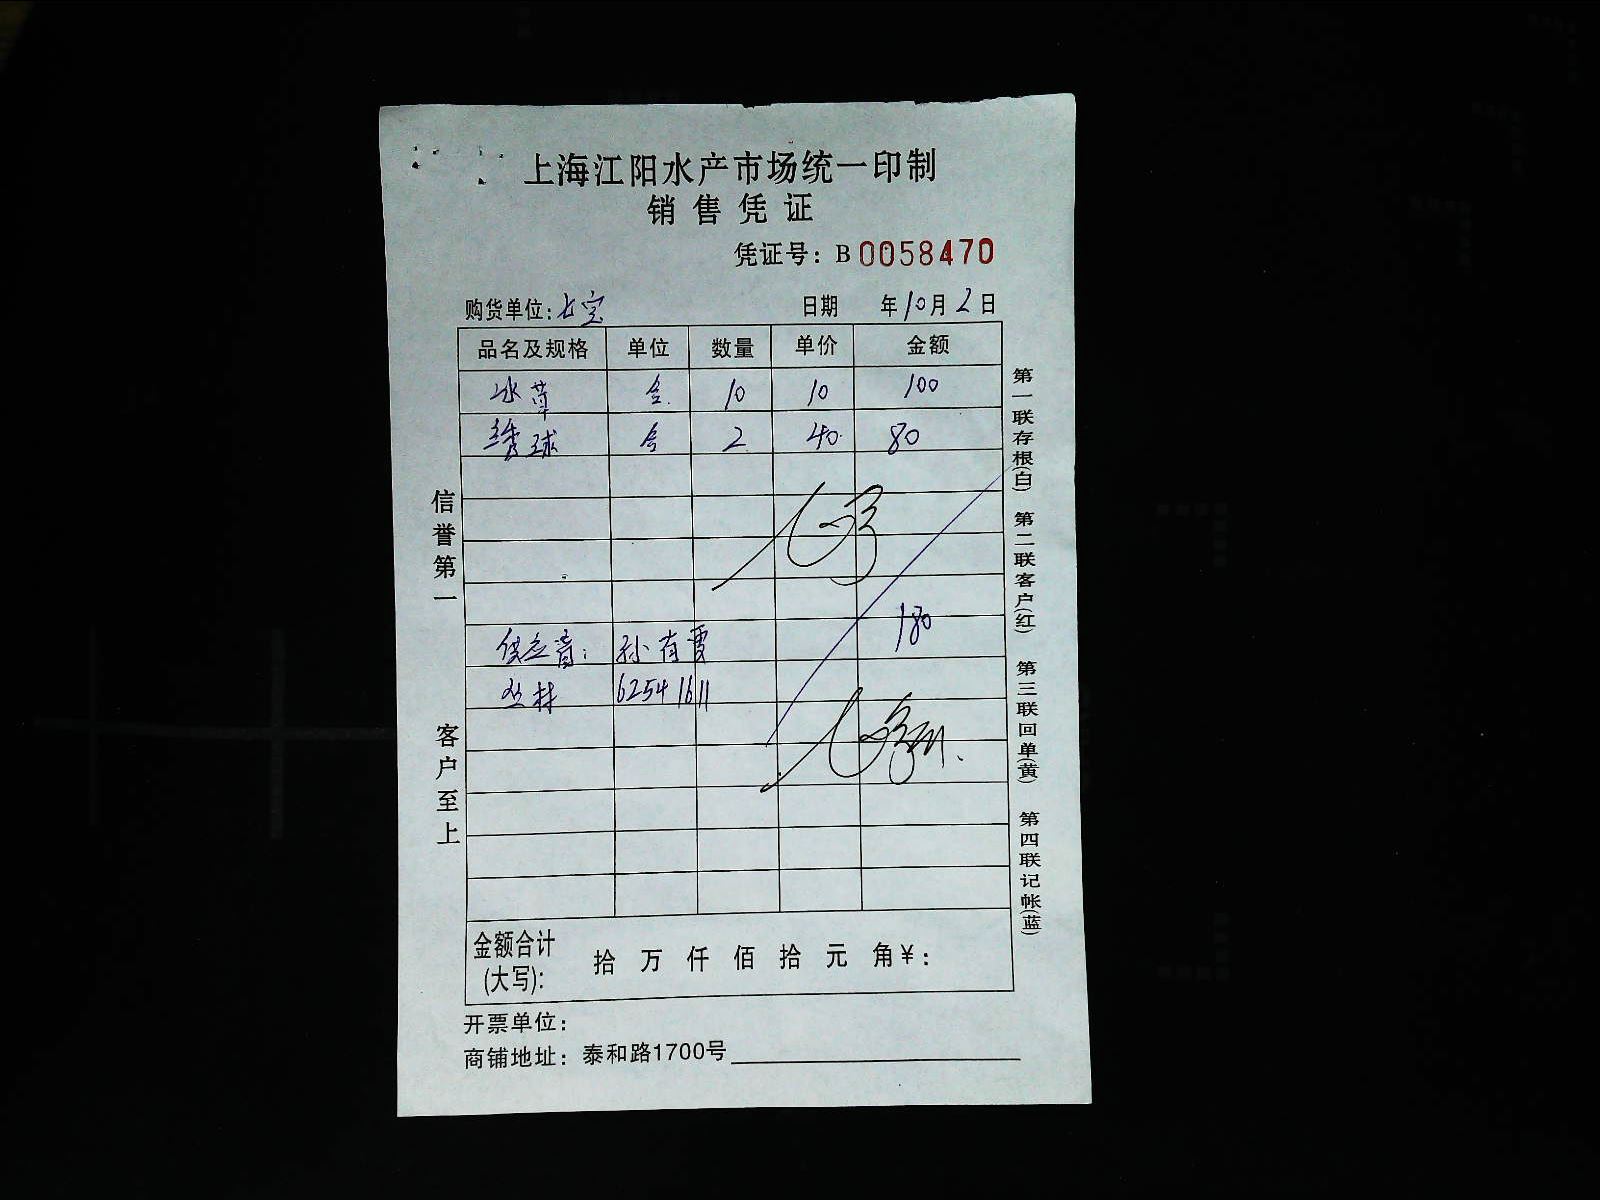 上海江阳水产市场统一印制
销售凭证
凭证号：B 0058470
购货单位：七宝 日期 年10月2日
品名及规格 单位 数量 单价 金额
冰草 合 10 10 100
绣球 合 2 40 80
180
供应商：孙有贾
丛林 62541611
金额合计(大写)： 拾 万 仟 佰 拾 元 角￥：
开票单位：
商铺地址：泰和路1700号
信誉第一 客户至上
第一联存根(白) 第二联客户(红) 第三联回单(黄) 第四联记帐(蓝)